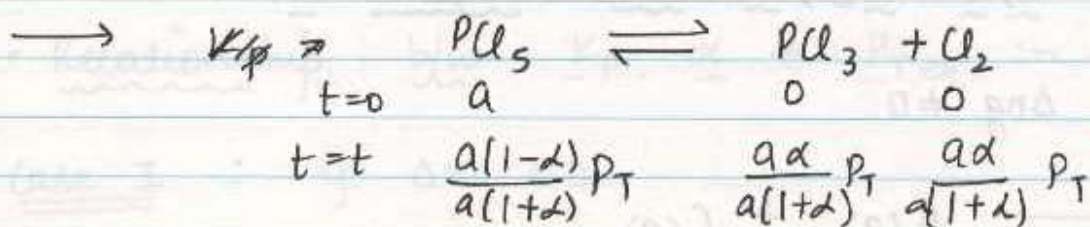 ⟶ PCl₅ ⇌ PCl₃ + Cl₂
t=0 a 0 0
t=t a(1-α)/a(1+α) P_T aα/a(1+α) P_T aα/a(1+α) P_T